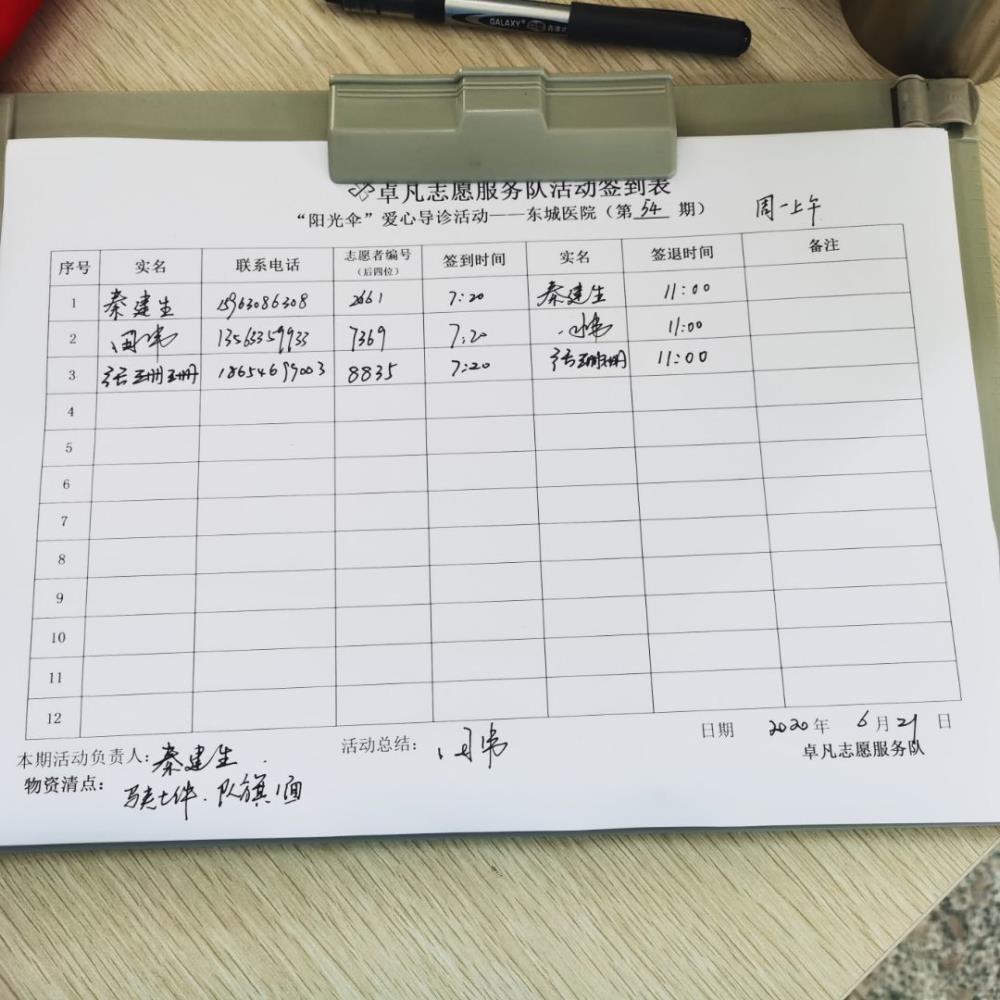 GALAXY
卓凡志愿服务队活动签到表
“阳光伞”爱心导诊活动——东城医院（第 54 期） 周一上午
序号 实名 联系电话 志愿者编号（后四位） 签到时间 实名 签退时间 备注
1 秦建生 15963086308 2661 7:20 秦建生 11:00
2 7369 7:20 11:00
3 张珊珊 18654699003 8835 7:20 张珊珊 11:00
4
5
6
7
8
9
10
11
12
日期 2020年 6月 21 日
本期活动负责人：秦建生 活动总结：
卓凡志愿服务队
物资清点： 队旗1面